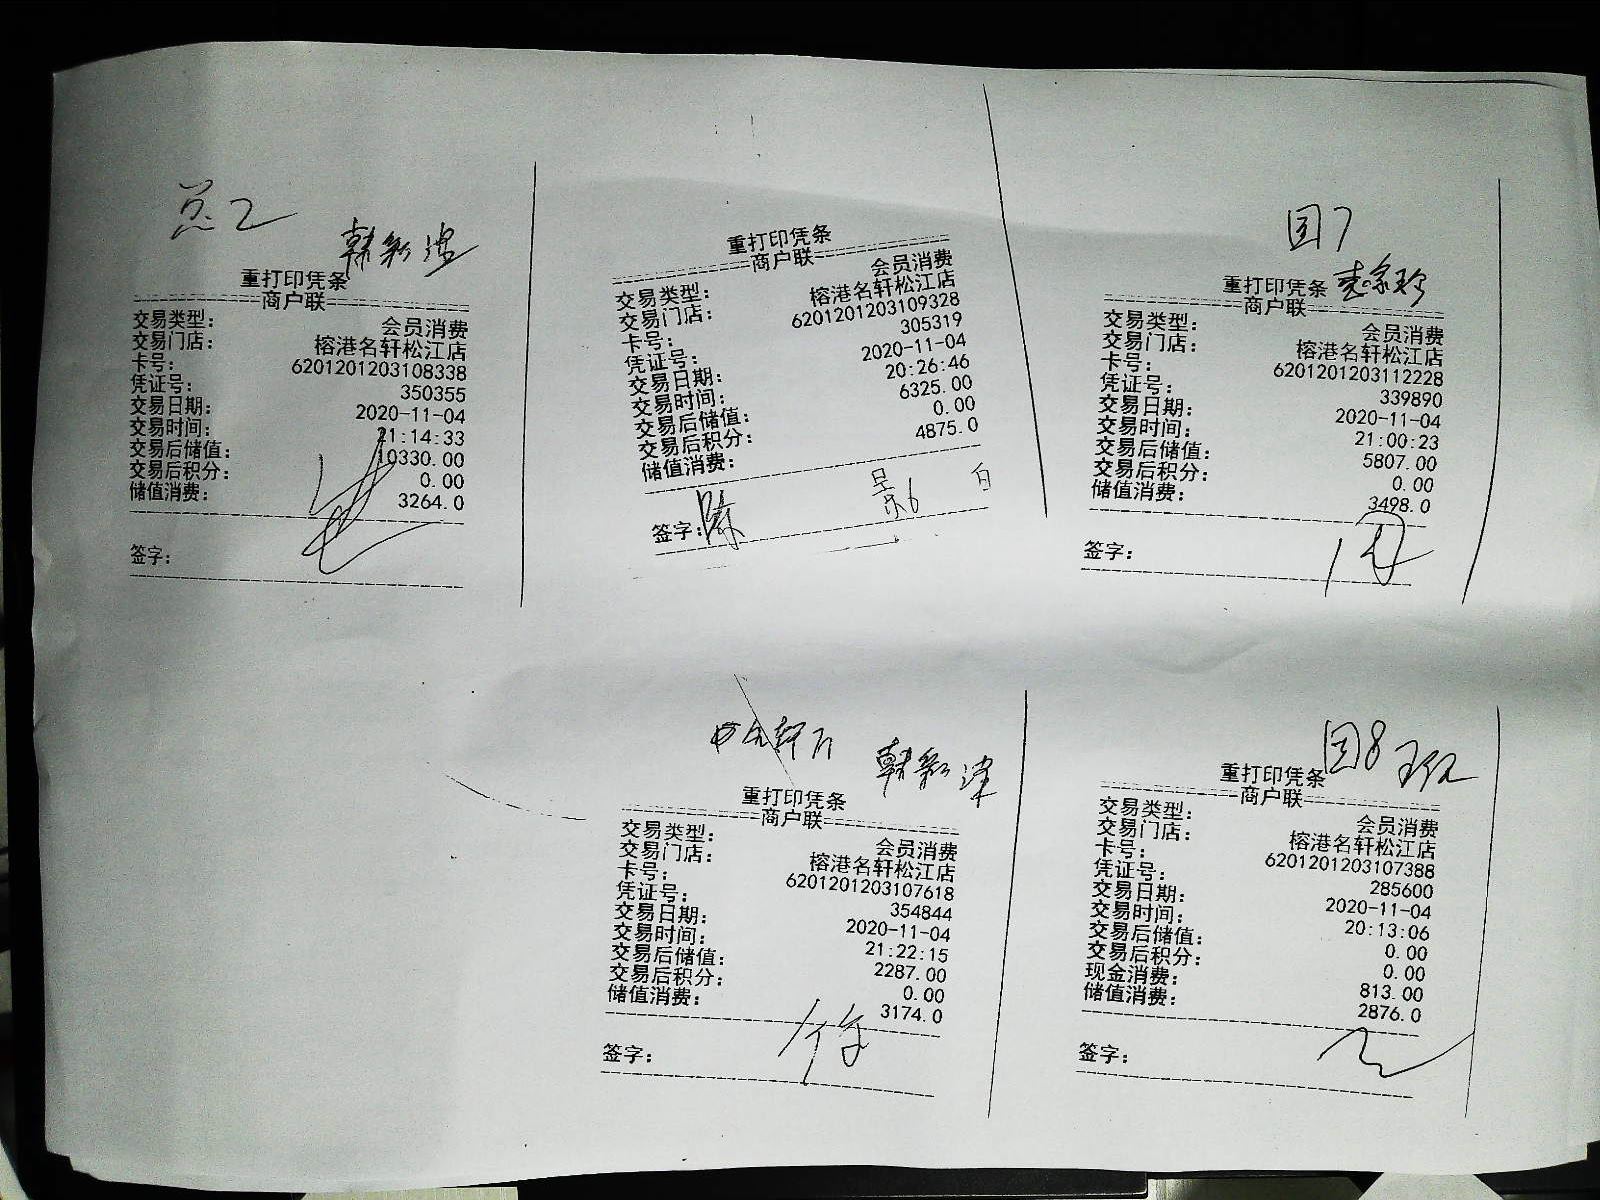 总2
韩新
重打印凭条
商户联
交易类型: 会员消费
交易门店: 榕港名轩松江店
卡号: 6201201203108338
凭证号: 350355
交易日期: 2020-11-04
交易时间: 21:14:33
交易后储值: 10330.00
交易后积分: 0.00
储值消费: 3264.0
签字:
重打印凭条
商户联
交易类型: 会员消费
交易门店: 榕港名轩松江店
卡号: 6201201203109328
凭证号: 305319
交易日期: 2020-11-04
交易时间: 20:26:46
交易后储值: 6325.00
交易后积分: 0.00
储值消费: 4875.0
签字: 陈
国7
重打印凭条
商户联
交易类型: 会员消费
交易门店: 榕港名轩松江店
卡号: 6201201203112228
凭证号: 339890
交易日期: 2020-11-04
交易时间: 21:00:23
交易后储值: 5807.00
交易后积分: 0.00
储值消费: 3498.0
签字:
韩新
重打印凭条
商户联
交易类型: 会员消费
交易门店: 榕港名轩松江店
卡号: 6201201203107618
凭证号: 354844
交易日期: 2020-11-04
交易时间: 21:22:15
交易后储值: 2287.00
交易后积分: 0.00
储值消费: 3174.0
签字:
国8
重打印凭条
商户联
交易类型: 会员消费
交易门店: 榕港名轩松江店
卡号: 6201201203107388
凭证号: 285600
交易日期: 2020-11-04
交易时间: 20:13:06
交易后储值: 0.00
交易后积分: 0.00
现金消费: 813.00
储值消费: 2876.0
签字: